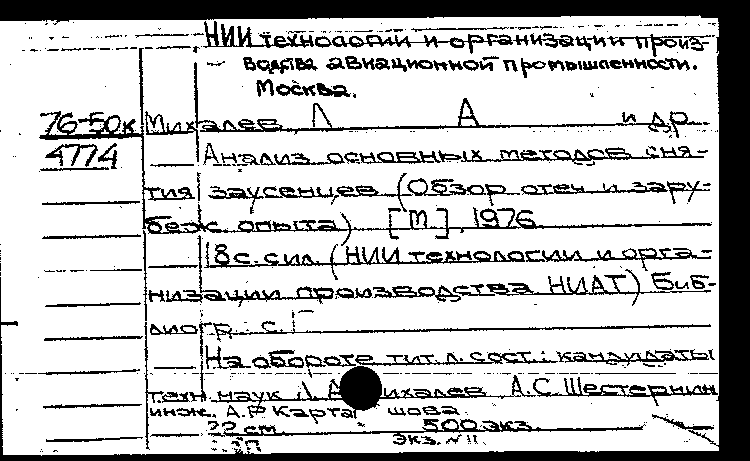 НИИ технологии и организации произ-
водства авиационной промышленности.
Москва.
76-50к Михалев, Л А и др.
4774 Анализ основных методов сня-
тия заусенцев (Обзор отеч и зару-
беж. опыта) [М], 1976
18 с. с ил. (НИИ технологии и орга-
низации производства НИАТ) Биб-
лиогр.: с.
На обороте тит. л. сост.: кандидаты
техн. наук Л. А ихалев, А.С. Шестернин,
инж. А.Р Карта шова
22 см 500 экз.
экз. № 11